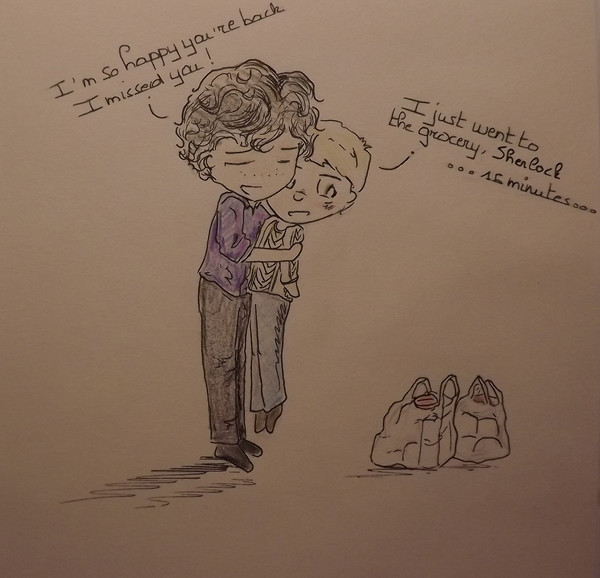 I'm so happy you're back
I missed you!
I just went to
the grocery, Sherlock
...15 minutes...